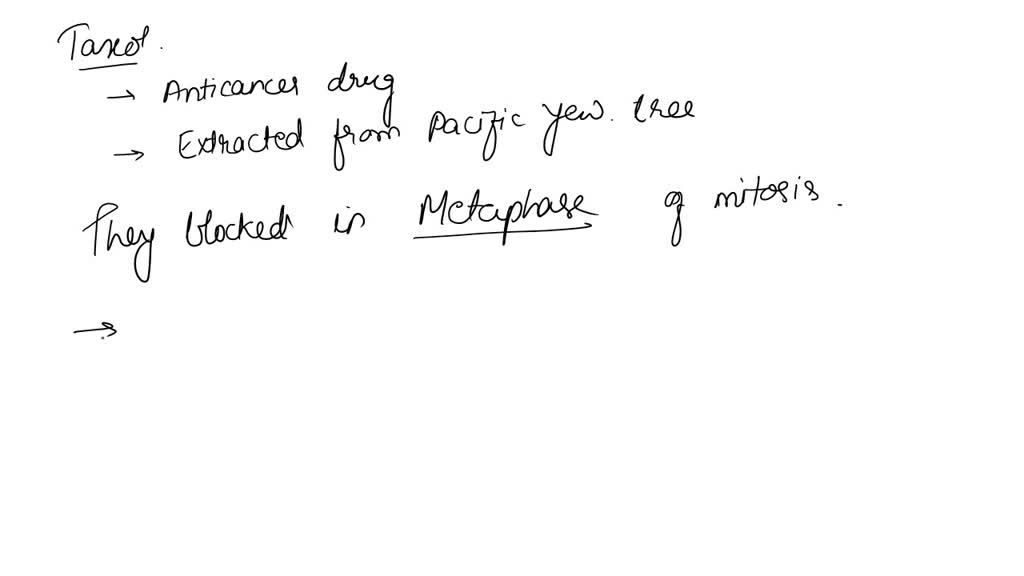 Taxol.
→ Anticancer drug
→ Extracted from pacific yew. tree
They blocked in Metaphase of mitosis.
→